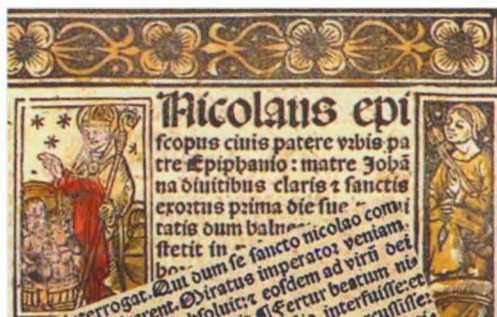 Nicolaus epi
scopus ciuis patere vrbis pa
tre Epiphanio: matre Johā
na diuitibus claris ⁊ sanctis
exortus prima die sue
tatis dum balne
stetit in
terrogat. Qui dum se sancto nicolao com
rent. Miratus imperator veniam
bsoluit: ⁊ eosdem ad virū dei
Fertur beatum nis
interfuisse: et
rcussisse: